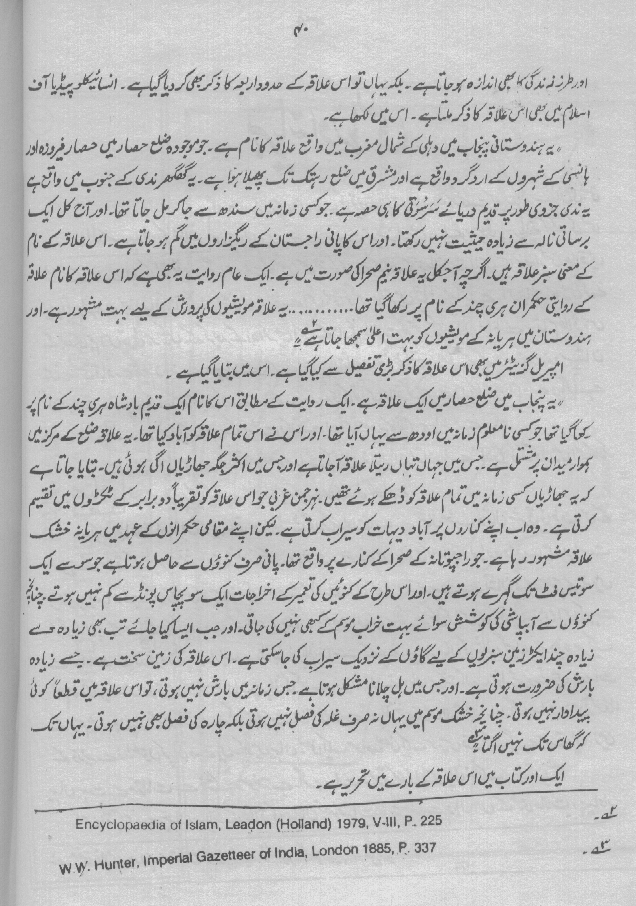 ۴۰
اور طرز زندگی کا بھی اندازہ ہو جاتا ہے۔ بلکہ یہاں تو اس علاقہ کے حدود اربعہ کا ذکر بھی کر دیا گیا ہے۔ انسائیکلوپیڈیا آف
اسلام میں بھی اس علاقہ کا ذکر ملتا ہے۔ اس میں لکھا ہے۔
"یہ ہندوستانی پنجاب میں دہلی کے شمال مغرب میں واقع علاقہ کا نام ہے۔ جو موجودہ ضلع حصار میں حصار فیروزہ اور
ہانسی کے شہروں کے ارد گرد واقع ہے اور مشرق میں ضلع رہتک تک پھیلا ہوا ہے۔ یہ گھگھر ندی کے جنوب میں واقع ہے
یہ ندی جزوی طور پر قدیم دریائے سرسُوتی کا ہی حصہ ہے۔ جو کسی زمانہ میں سندھ سے جا کر مل جاتا تھا۔ اور آج کل ایک
برساتی نالہ سے زیادہ حیثیت نہیں رکھتا۔ اور اس کا پانی راجستان کے ریگزاروں میں گم ہو جاتا ہے۔ اس علاقہ کے نام
کے معنی سبز علاقہ ہیں۔ اگرچہ آجکل یہ علاقہ نیم صحرا کی صورت میں ہے۔ ایک عام روایت یہ بھی ہے کہ اس علاقہ کا نام علاقہ
کے روایتی حکمران ہری چند کے نام پر رکھا گیا تھا............ یہ علاقہ مویشیوں کی پرورش کے لیے بہت مشہور ہے۔ اور
ہندوستان میں ہریانہ کے مویشیوں کو بہت اعلیٰ سمجھا جاتا ہے ۲؎"
امپیریل گزیٹئر میں بھی اس علاقہ کا ذکر بڑی تفصیل سے کیا گیا ہے۔ اس میں بتایا گیا ہے۔
"یہ پنجاب میں ضلع حصار میں ایک علاقہ ہے۔ ایک روایت کے مطابق اس کا نام ایک قدیم بادشاہ ہری چند کے نام پر
رکھا گیا تھا جو کسی نامعلوم زمانہ میں اودھ سے یہاں آیا تھا۔ اور اس نے اس تمام علاقہ کو آباد کیا تھا۔ یہ علاقہ ضلع کے مرکز میں
ہموار میدان پر مشتمل ہے۔ جس میں جہاں تہاں ریتلا علاقہ آجاتا ہے اور جس میں اکثر جگہ جھاڑیاں اگی ہوئی ہیں۔ بتایا جاتا ہے
کہ یہ جھاڑیاں کسی زمانہ میں تمام علاقہ کو ڈھکے ہوئے تھیں۔ نہر جمن غربی جو اس علاقہ کو تقریباً دو برابر کے ٹکڑوں میں تقسیم
کرتی ہے۔ وہ اب اپنے کناروں پر آباد دیہات کو سیراب کرتی ہے۔ لیکن اپنے مقامی حکمرانوں کے عہد میں ہریانہ خشک
علاقہ مشہور رہا ہے۔ جو راجپوتانہ کے صحرا کے کنارے پر واقع تھا۔ پانی صرف کنوؤں سے حاصل ہوتا ہے جو سو سے ایک
سو تیس فٹ تک گہرے ہوتے ہیں۔ اور اس طرح کے کنوئیں کی تعمیر کے اخراجات ایک سو پچاس پونڈ سے کم نہیں ہوتے۔ چنانچہ
کنوؤں سے آبپاشی کی کوشش سوائے بہت خراب موسم کے کبھی نہیں کی جاتی۔ اور جب ایسا کیا جائے تب بھی زیادہ سے
زیادہ چند ایکڑ زمین سبزیوں کے لیے گاؤں کے نزدیک سیراب کی جا سکتی ہے۔ اس علاقہ کی زمین سخت ہے۔ جسے زیادہ
بارش کی ضرورت ہوتی ہے۔ اور جس میں ہل چلانا مشکل ہوتا ہے۔ جس زمانہ میں بارش نہیں ہوتی، تو اس علاقہ میں قطعاً کوئی
پیداوار نہیں ہوتی۔ چنانچہ خشک موسم میں یہاں نہ صرف غلہ کی فصل نہیں ہوتی بلکہ چارہ کی فصل بھی نہیں ہوتی۔ یہاں تک
کہ گھاس تک نہیں اگتا ۳؎"
ایک اور کتاب میں اس علاقہ کے بارے میں تحریر ہے۔
۲؎۔ Encyclopaedia of Islam, Leadon (Holland) 1979, V-III, P. 225
۳؎۔ W.W. Hunter, Imperial Gazetteer of India, London 1885, P. 337